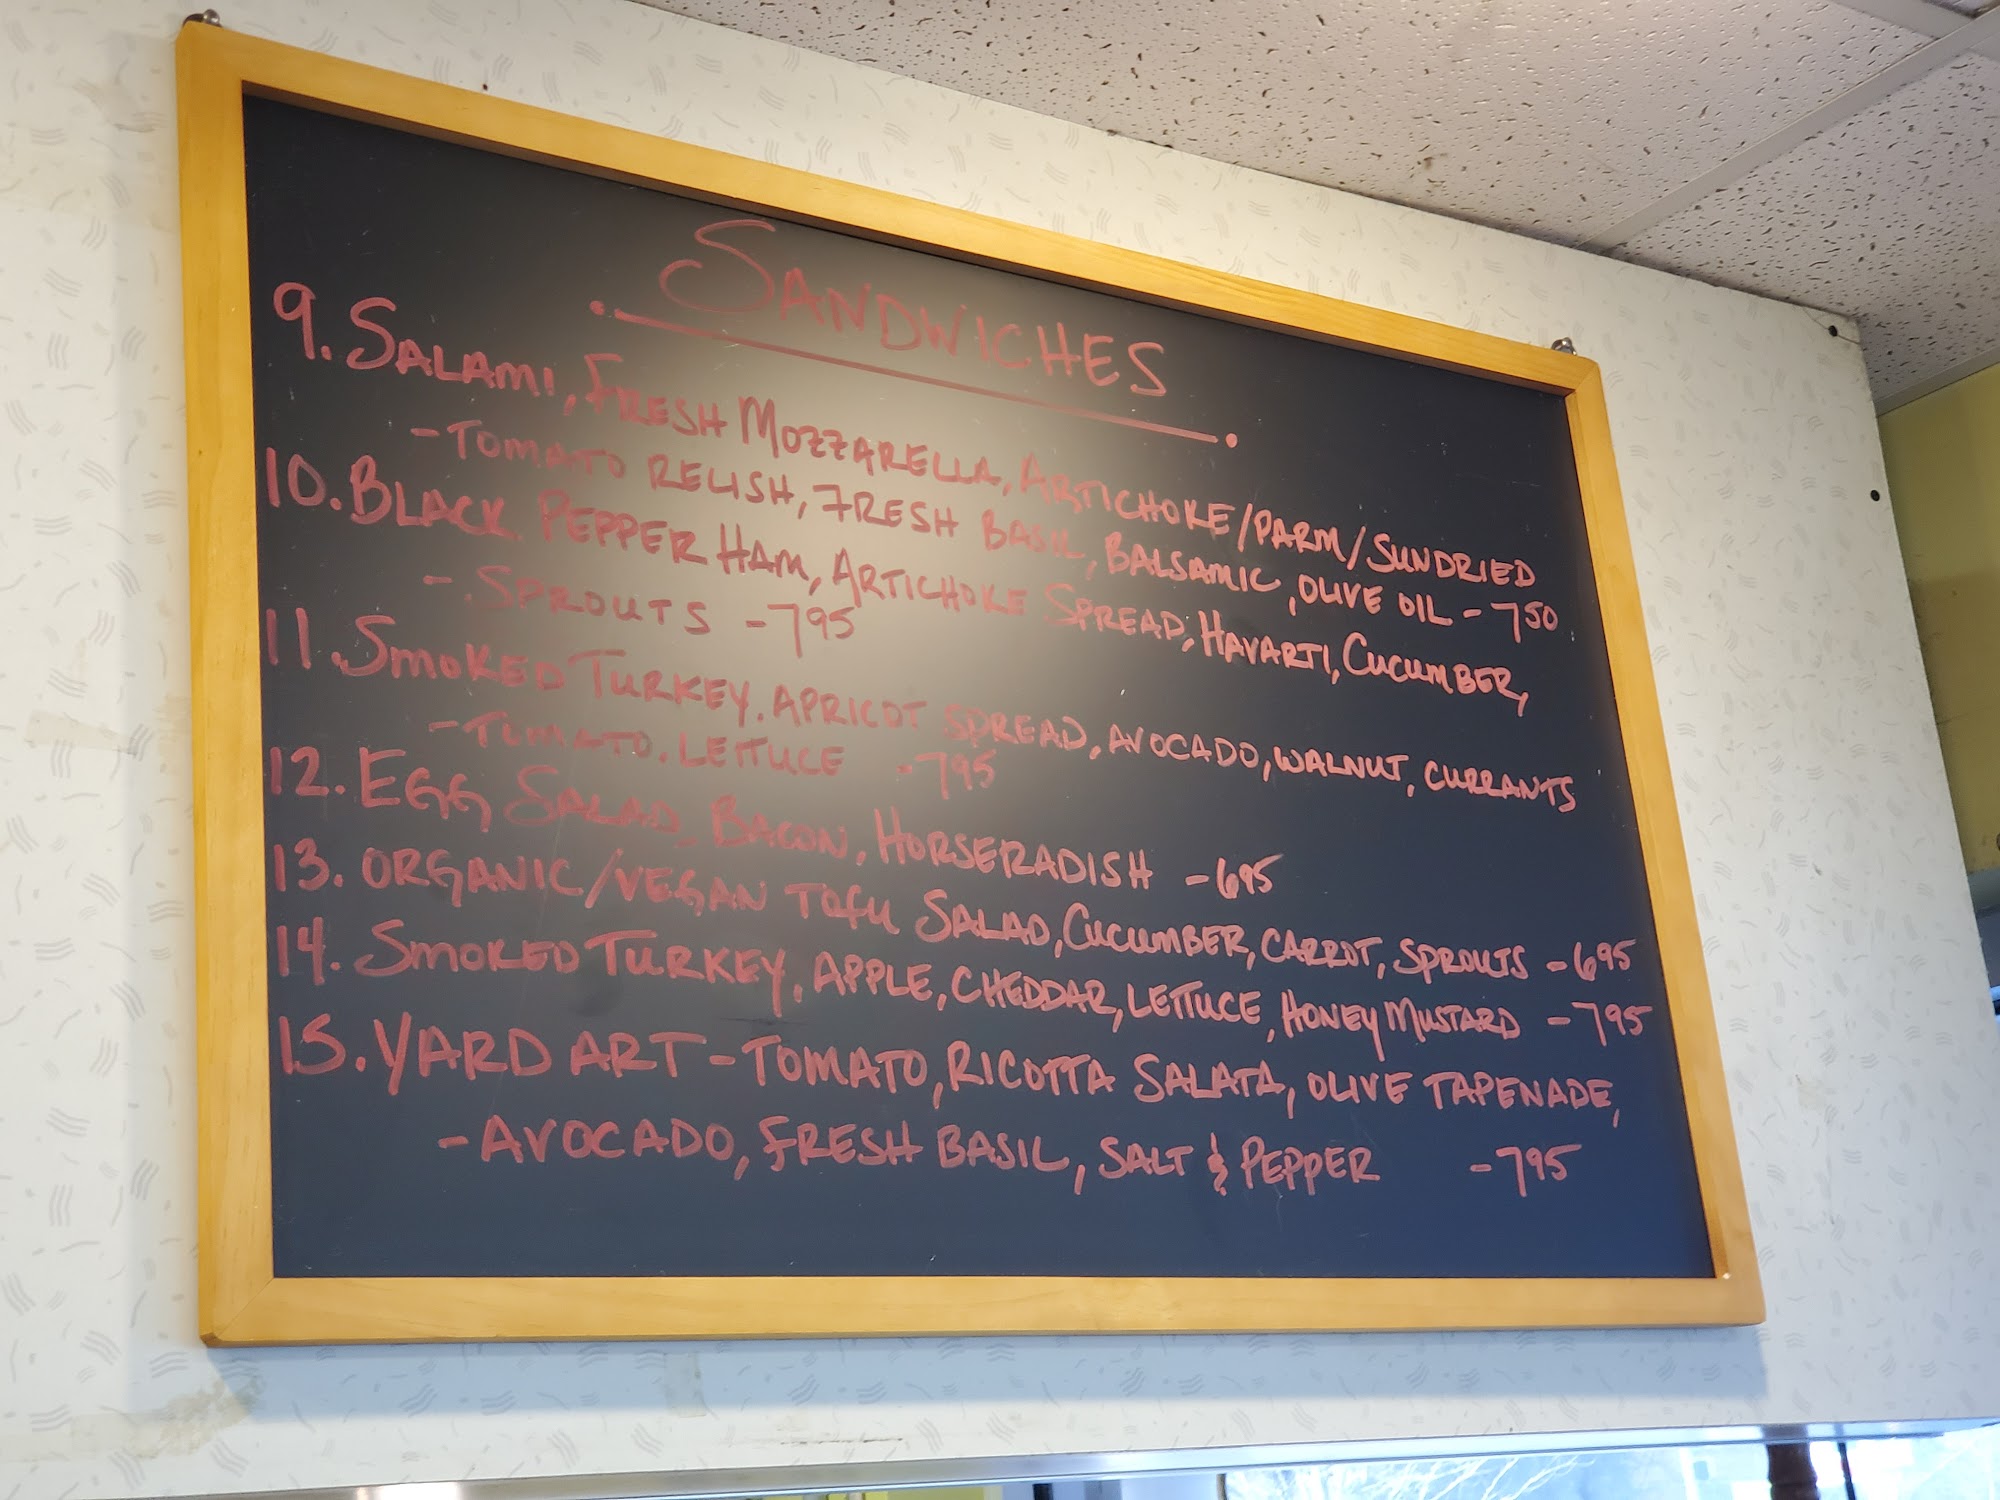 SANDWICHES
9. SALAMI, FRESH MOZZARELLA, ARTICHOKE/PARM/SUNDRIED
- TOMATO RELISH, FRESH BASIL, BALSAMIC, OLIVE OIL - 750
10. BLACK PEPPER HAM, ARTICHOKE SPREAD, HAVARTI, CUCUMBER,
- SPROUTS - 795
11. SMOKED TURKEY, APRICOT SPREAD, AVOCADO, WALNUT, CURRANTS
- TOMATO, LETTUCE - 795
12. EGG SALAD, BACON, HORSERADISH - 695
13. ORGANIC/VEGAN TOFU SALAD, CUCUMBER, CARROT, SPROUTS - 695
14. SMOKED TURKEY, APPLE, CHEDDAR, LETTUCE, HONEY MUSTARD - 795
15. YARD ART - TOMATO, RICOTTA SALATA, OLIVE TAPENADE,
- AVOCADO, FRESH BASIL, SALT & PEPPER - 795